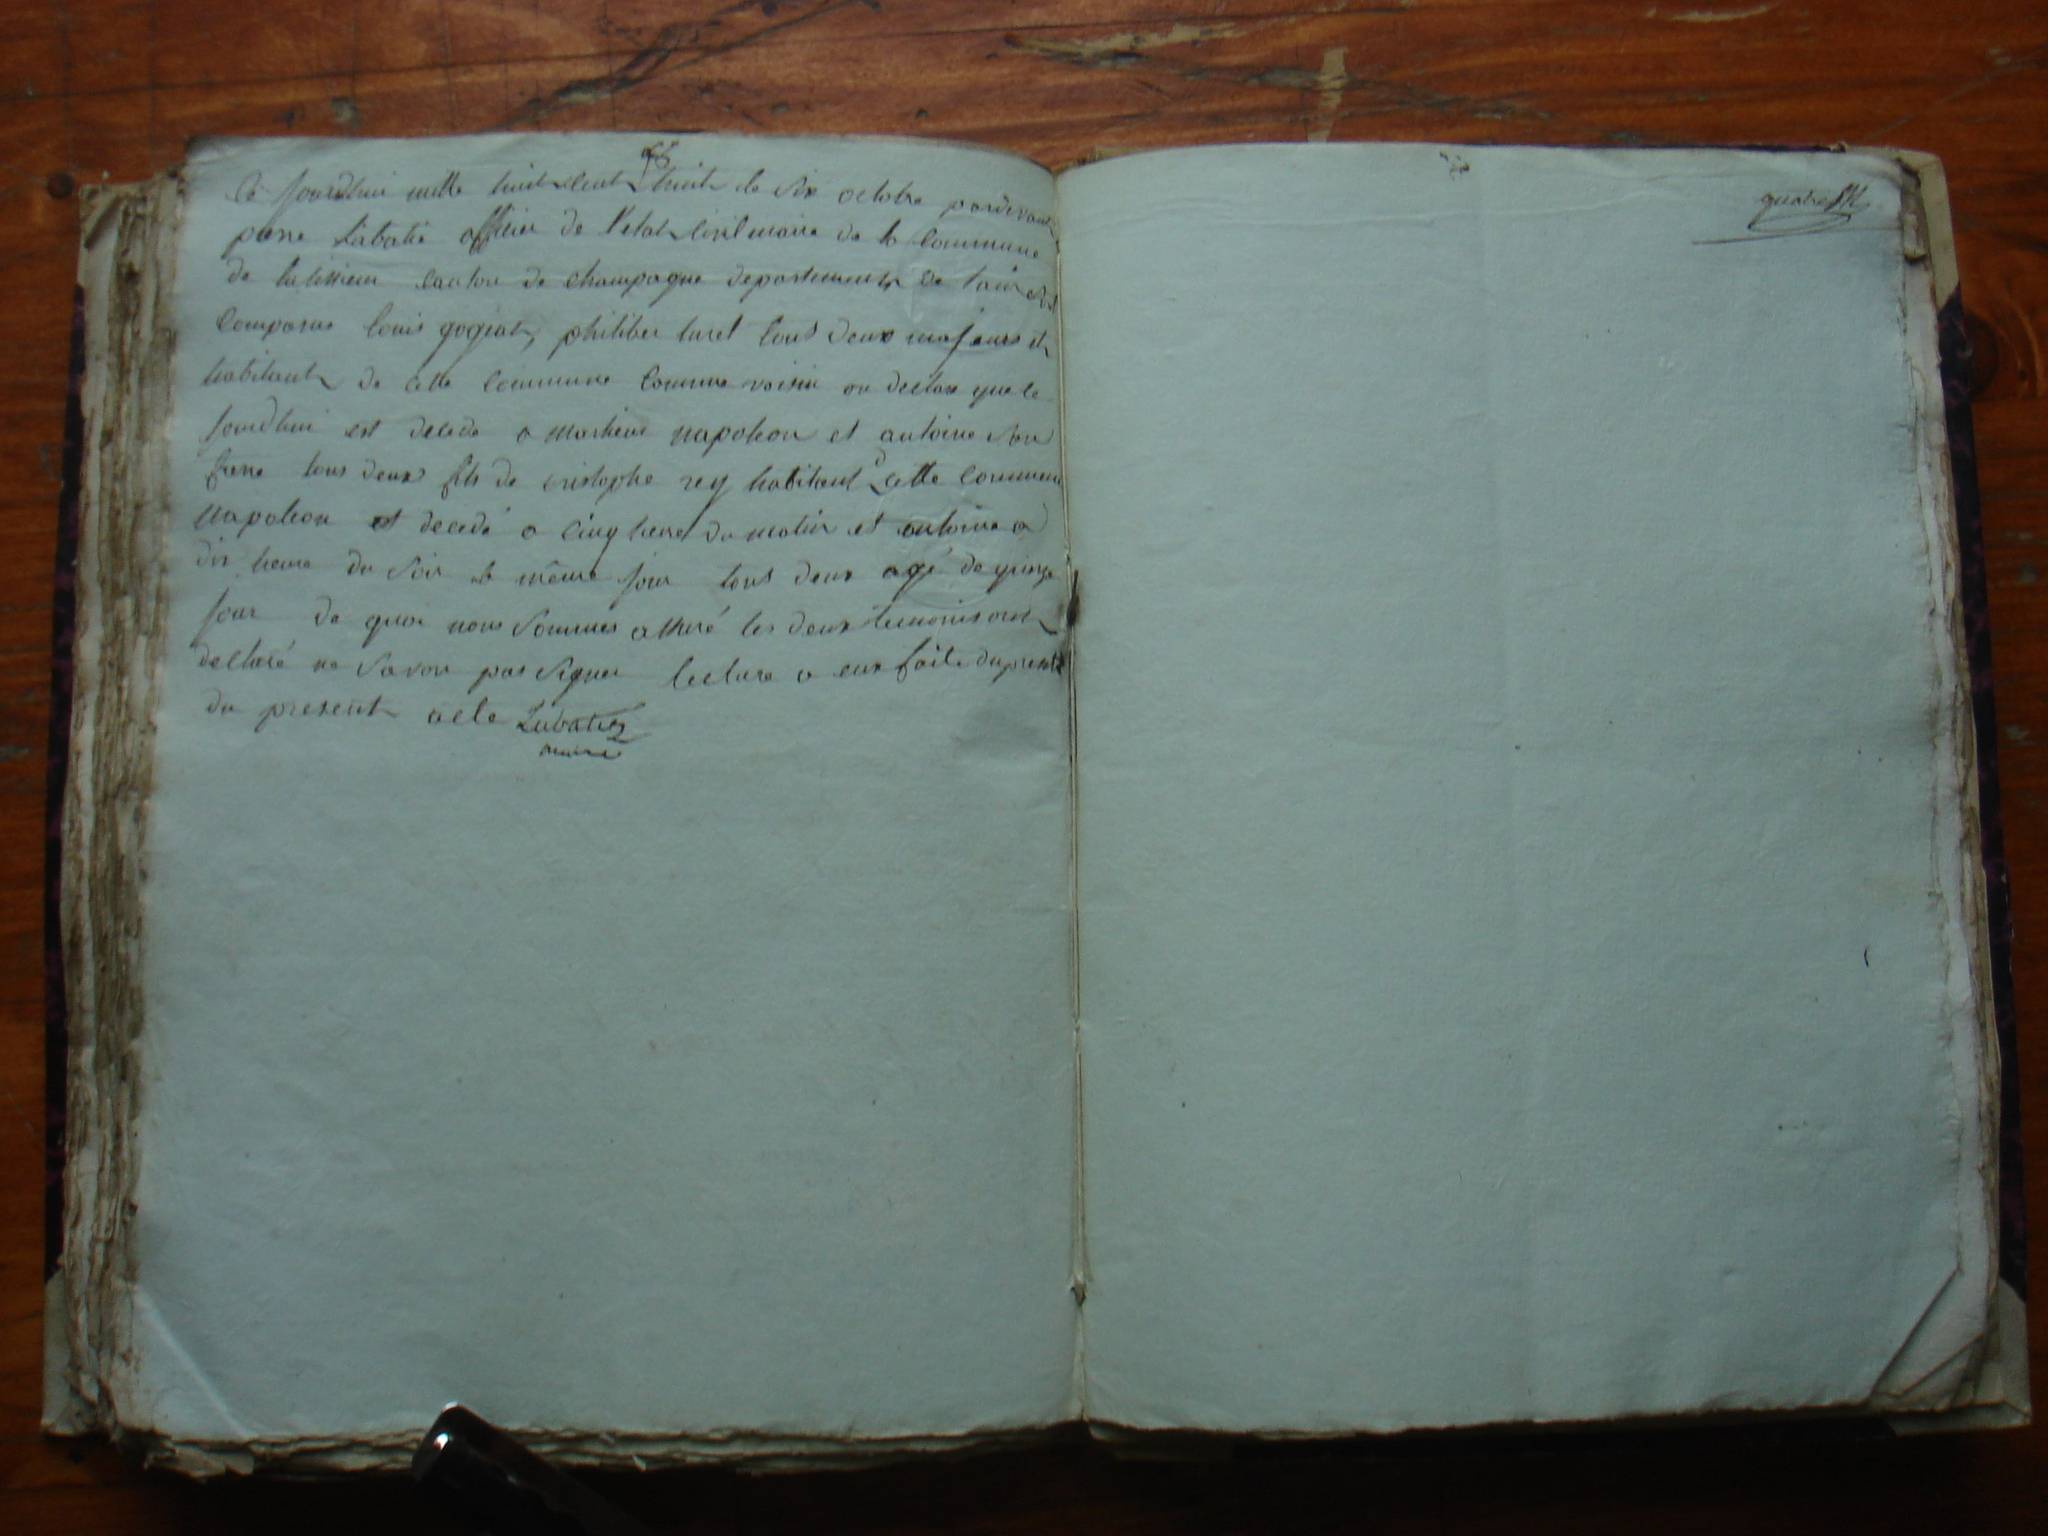 Ce jourdhui mille huit cent huit le six octobre pardevant
piere Labatie officier de l'etat Civil maire de la Commune
de lutissieu canton de champagne departement de l'ain est
Comparus louis gogeat, philiber turel tous deux majeurs et
habitant de cette commune comme voisin on declare que le
jourdhui est decede a napoleon et antoine son
frere tous deux fils de cristophe rey habitant d cette commune
napoleon est decedé a cinq heure du matin et antoine a
dix heure du soir le même jour tous deux agé de quinze
jour de quoi nous sommes assuré les deux temoins ont
declaré ne savoir pas signer lecture a eux faite du present
du present acte Labatie
maire